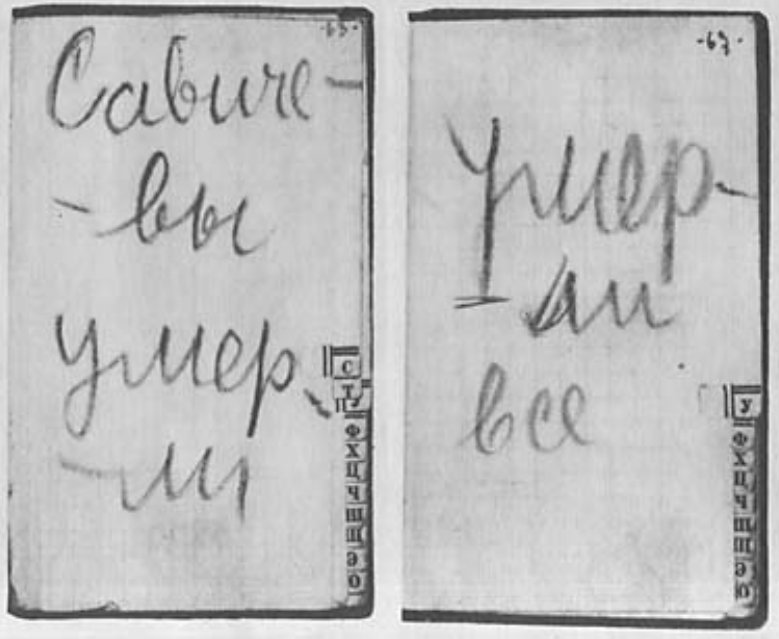 -65-
Савиче-
-вы
умер-
-ли
С
Т
У
Ф
Х
Ц
Ч
Ш
Щ
Э
О
-67-
умер-
-ли
все
У
Ф
Х
Ц
Ч
Ш
Щ
Э
О